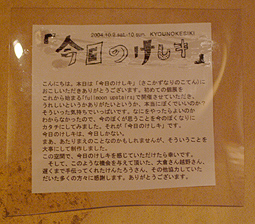 2004.10.9 sat.-10 sun. KYOUNOKESIKI
「今日のけしき」
こんにちは。本日は「今日のけしき」(きこかずなりのこてん)に
おこしいただきありがとうございます。初めての個展を
これから始まる「full moon usagiiro」で開催させていただき、
うれしいというかありがたいというか、本当にぼくでいいのか?
そういった気持ちでいっぱいです。なにをやったらよいのか
わからなかったので、今のぼくが思うことを今のぼくなりに
カタチにしてみました。それが「今日のけしき」です。
今日のけしきは、今日しかない。
まあ、あたりまえのことなのかもしれませんが、そういうことを
大事にして制作しました。
この空間で、今日のけしきを感じていただけたら幸いです。
そして、このような機会を与えて頂いた、大倉さん越野さん、
遅くまで手伝ってくれたけんたろうさん、その他協力してい
ただいた多くの方々に感謝します。ありがとうございます。